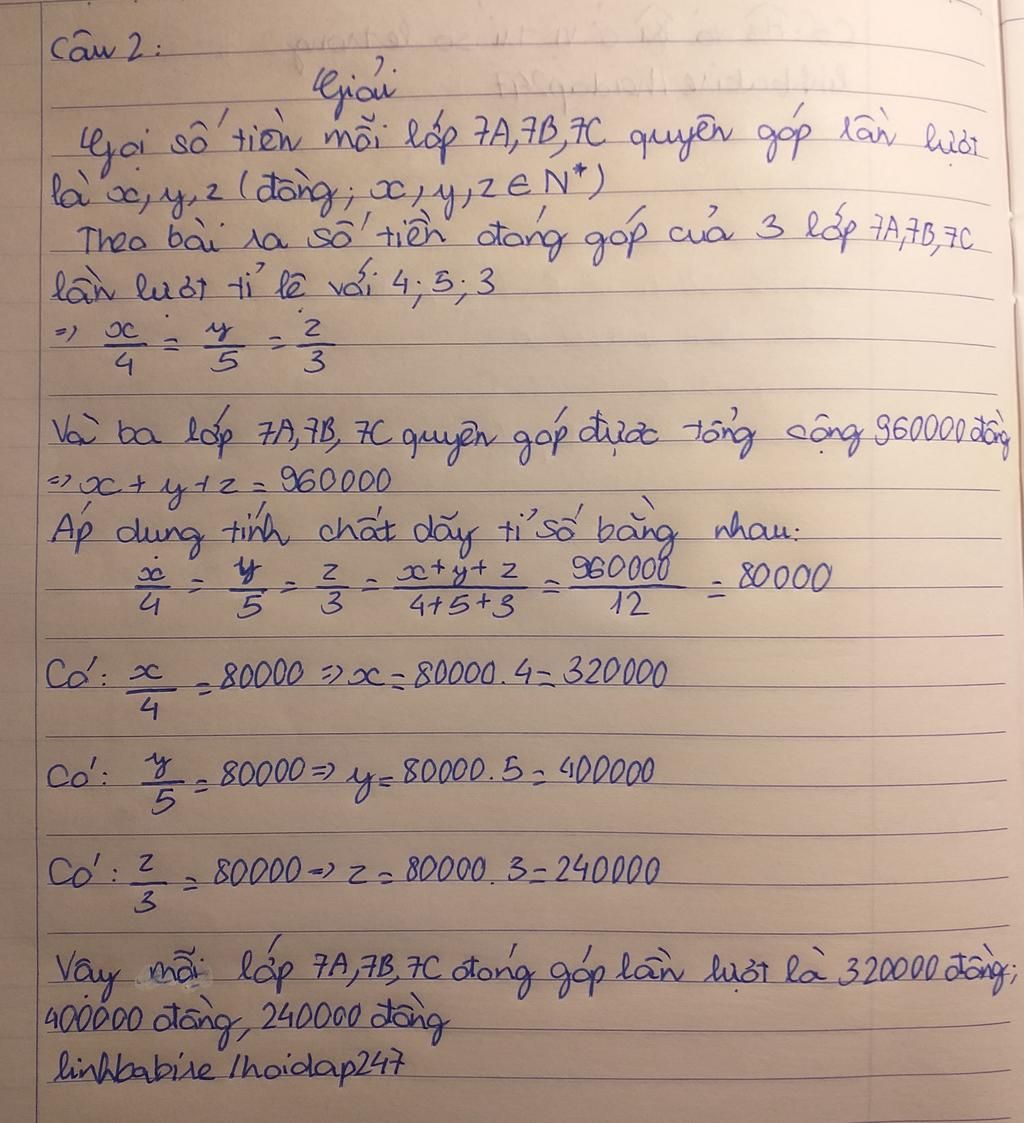 Câu 2:
Giải
Gọi số tiền mỗi lớp 7A,7B,7C quyên góp lần lượt
là x, y, z (đồng; x, y, z ∈ N*)
Theo bài ra số tiền đóng góp của 3 lớp 7A,7B,7C
lần lượt tỉ lệ với 4; 5; 3
=> x/4 = y/5 = z/3
Và ba lớp 7A,7B, 7C quyên góp được tổng cộng 960000 đồng
=> x + y + z = 960000
Áp dụng tính chất dãy tỉ số bằng nhau:
x/4 = y/5 = z/3 = x+y+z/4+5+3 = 960000/12 = 80000
Có: x/4 = 80000 => x = 80000. 4 = 320000
Có: y/5 = 80000 => y = 80000. 5 = 400000
Có: z/3 = 80000 => z = 80000. 3 = 240000
Vậy mỗi lớp 7A,7B,7C đóng góp lần lượt là 320000 đồng;
400000 đồng, 240000 đồng
linhbabire / hoidap247